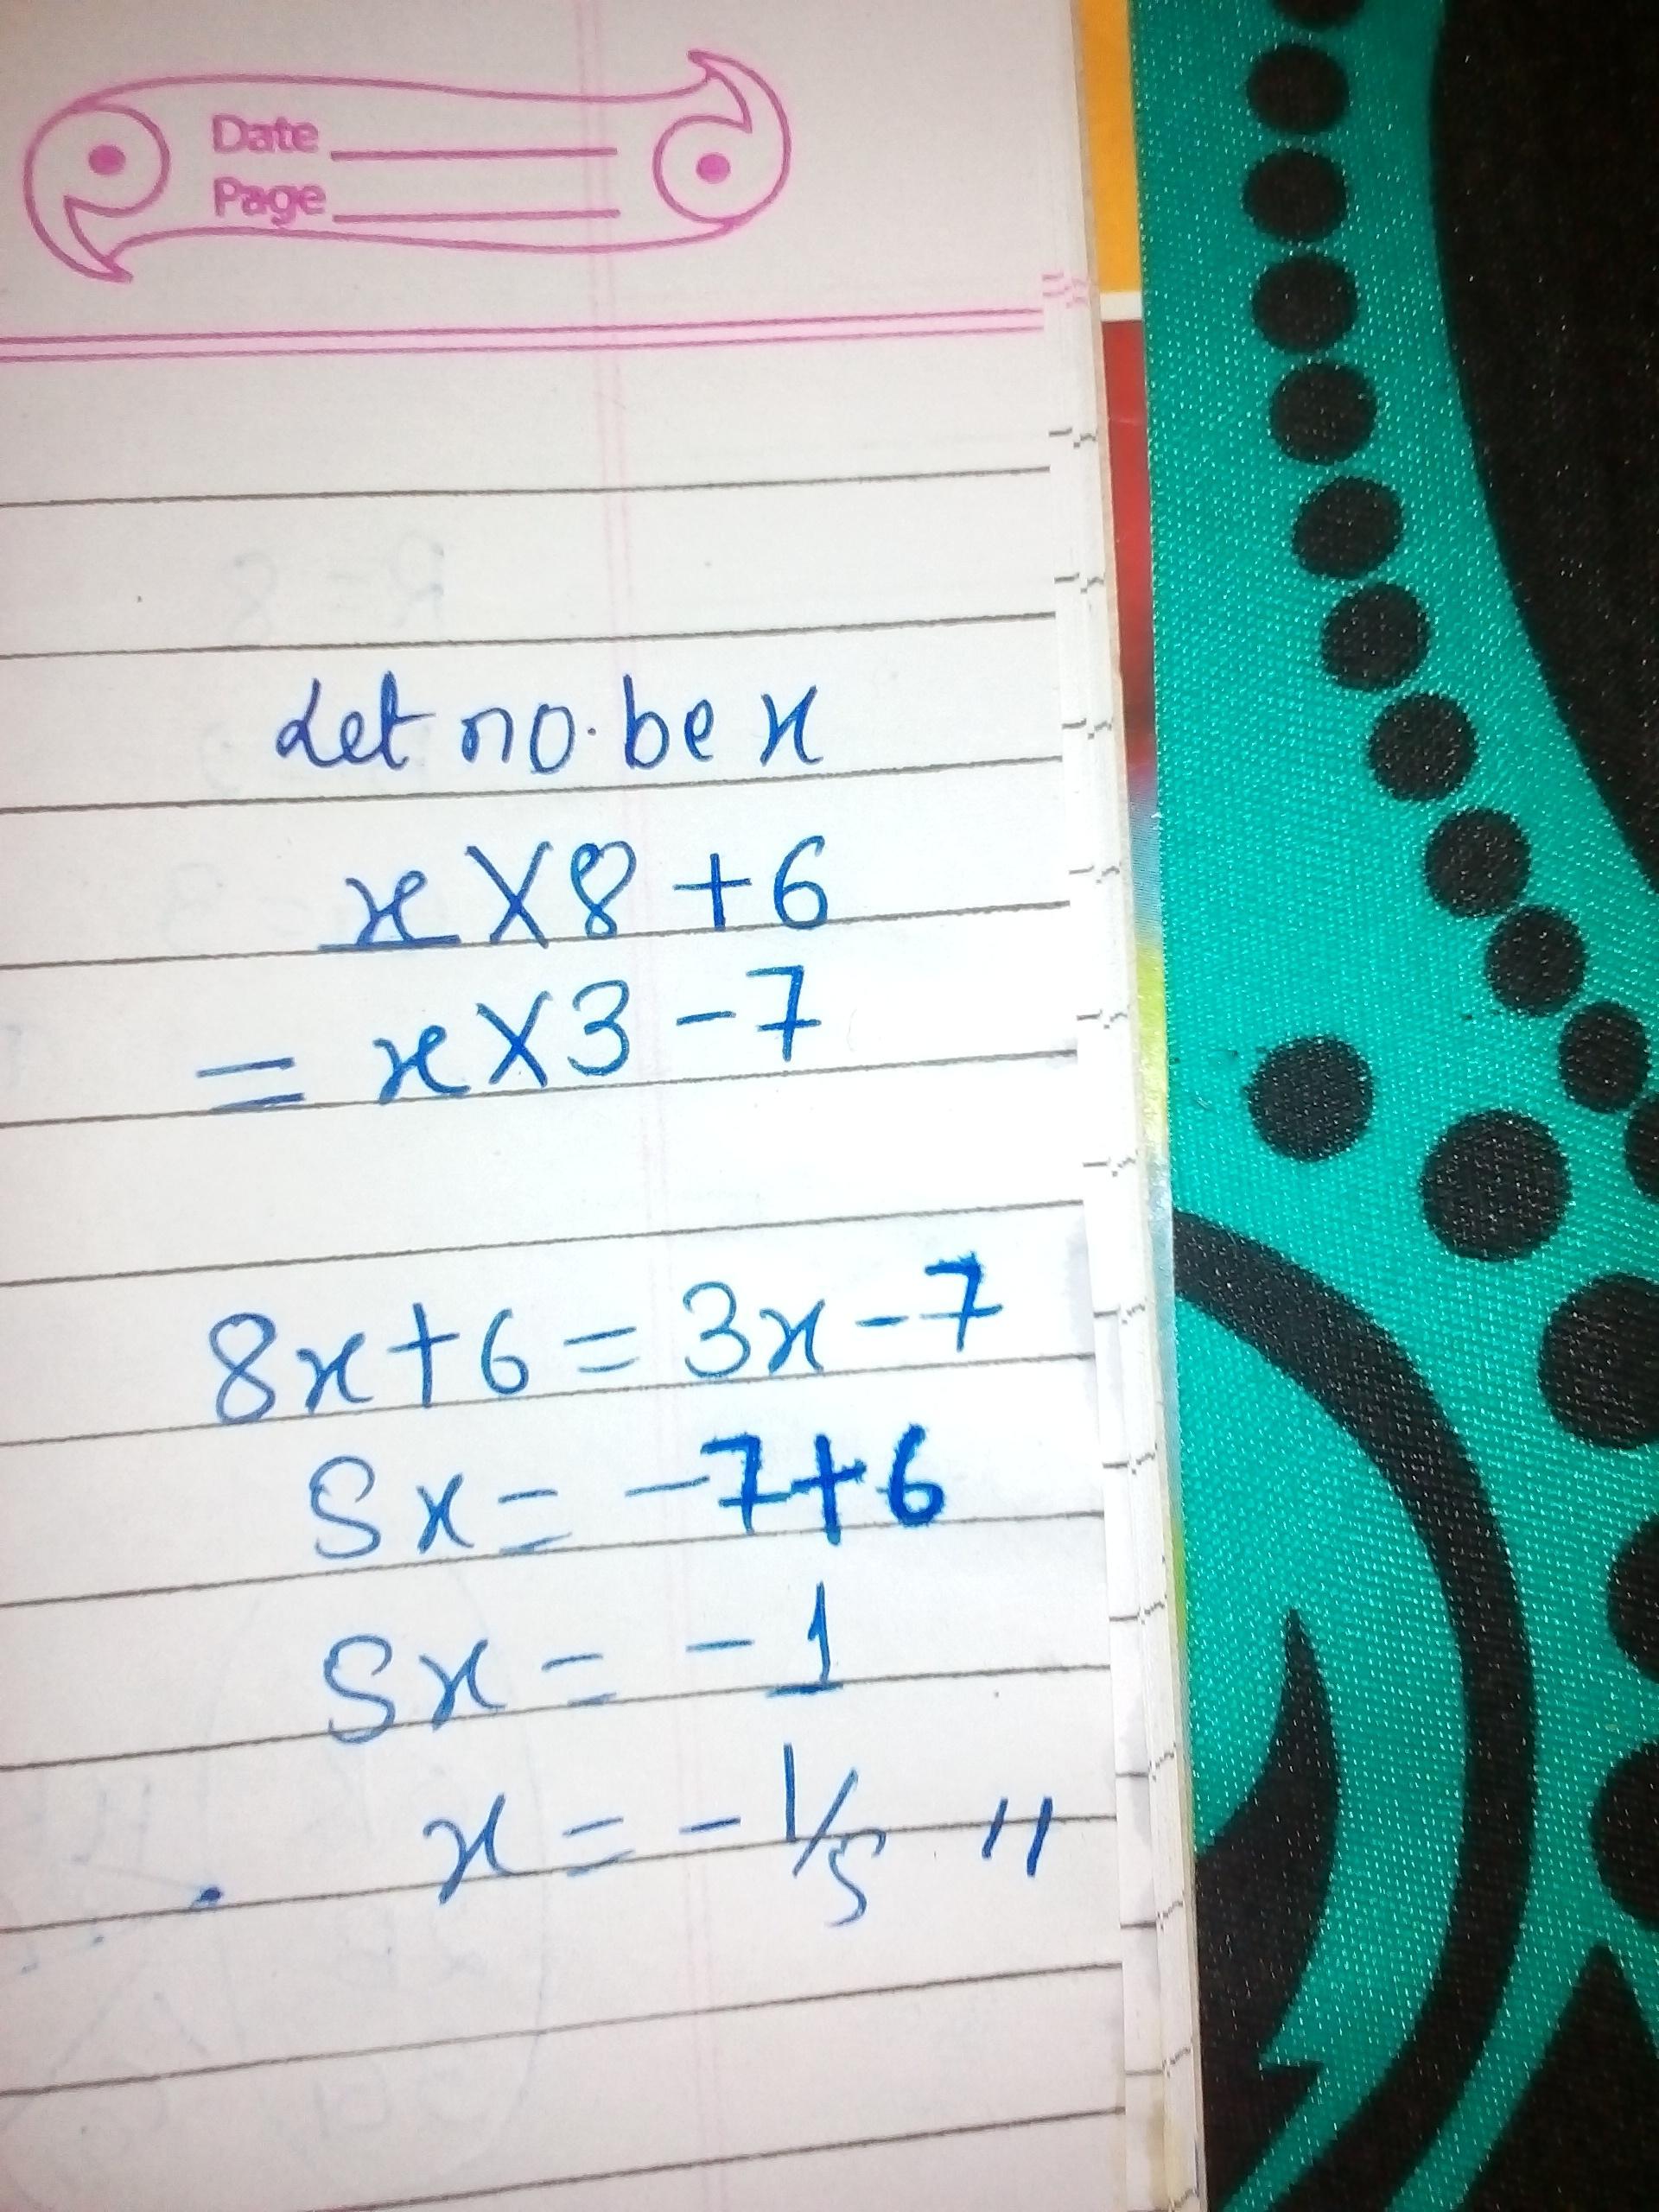 Date
Page
Let no. be x
x X 8 + 6
= x X 3 - 7
8x + 6 = 3x - 7
5x = - 7 + 6
5x = - 1
x = - 1/5 "